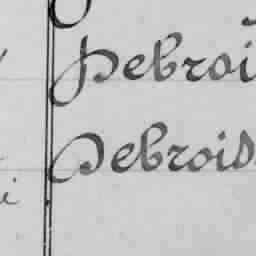 Debroi
Debrois